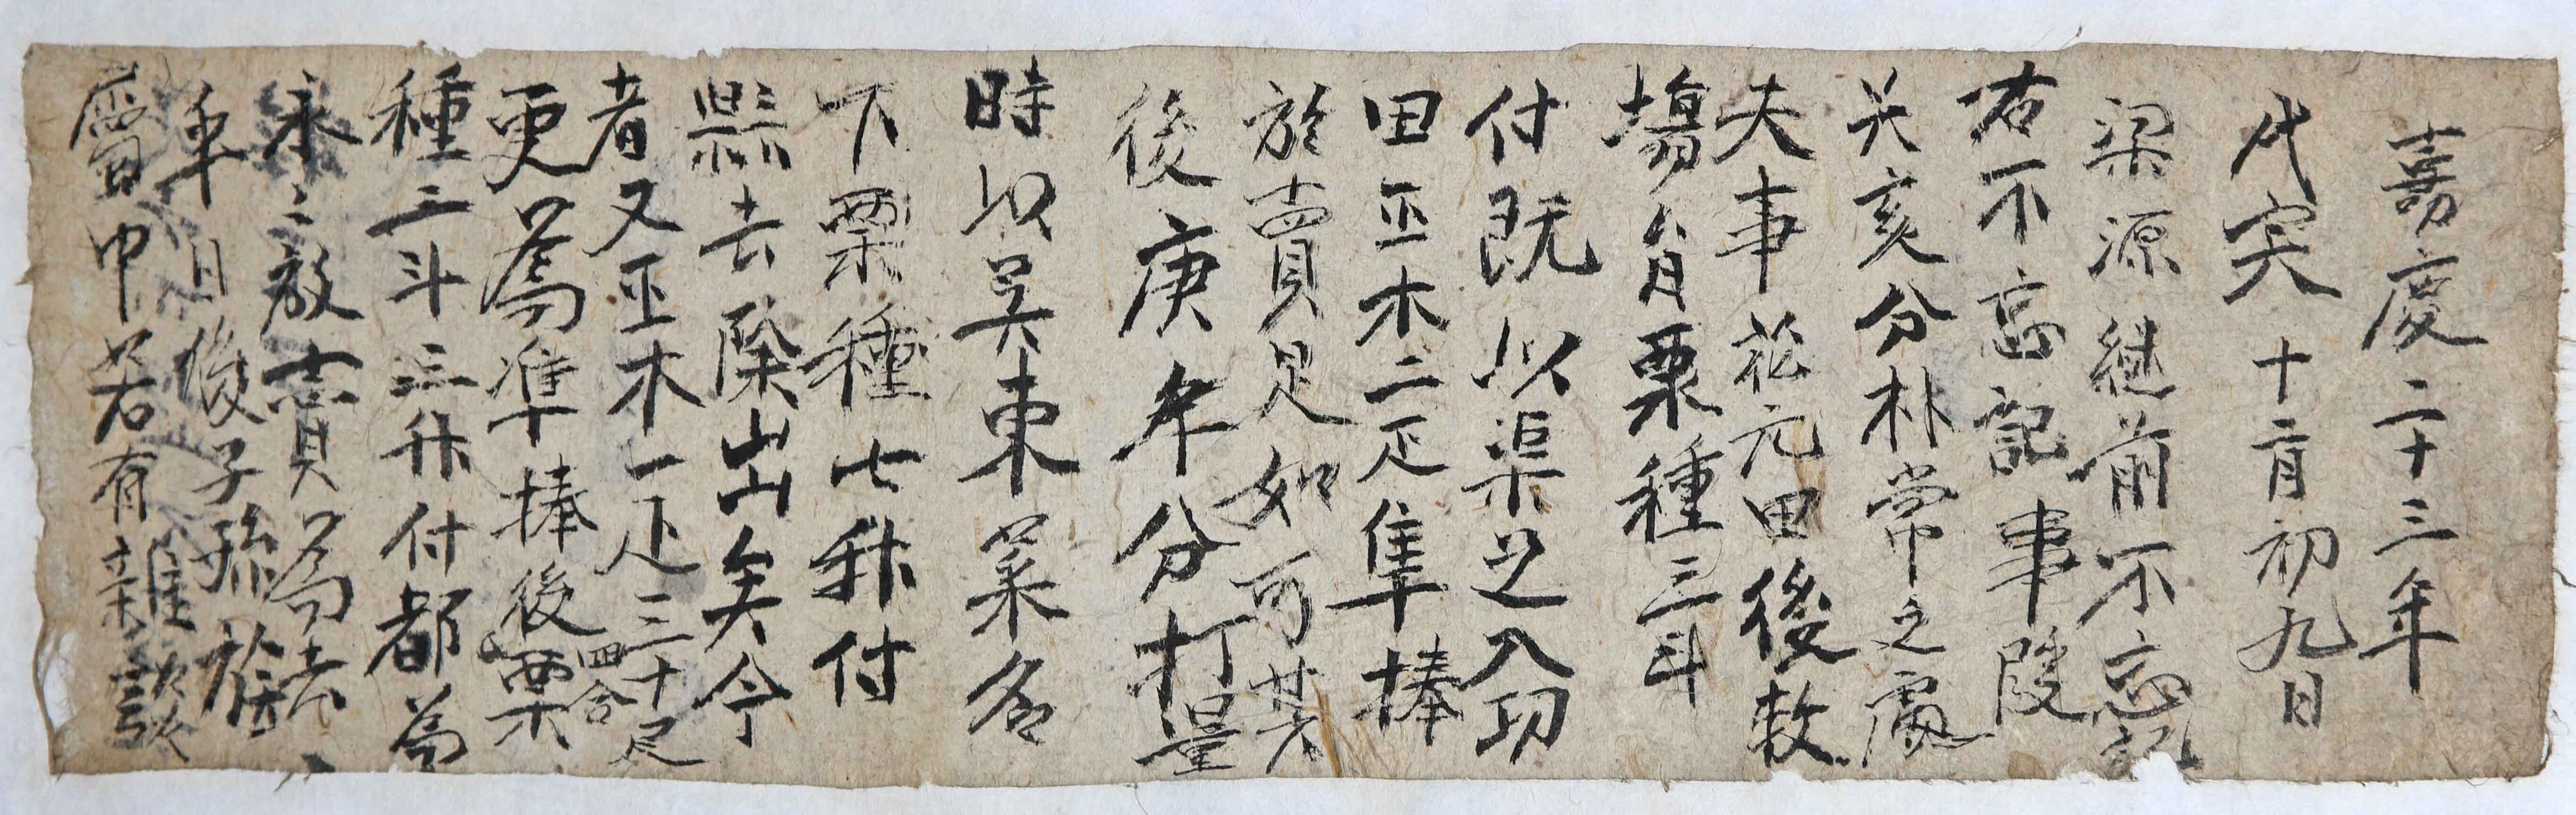 嘉慶二十三年
戊寅十二月初九日
梁源継前不忘記
右不忘記事段
癸亥分朴常之處
夫事 元田後教
場員粟種三斗
付既以渠之入功
田正木二疋準捧
於賣是如可其
後庚年分打量
時以吴東業名
下粟種七升付
縣去除出矣今
者又正木一疋三十尺
更為準捧後粟
種三斗三升四合付都為
永永放賣為去
年日後子孫族
屬中若有雜談